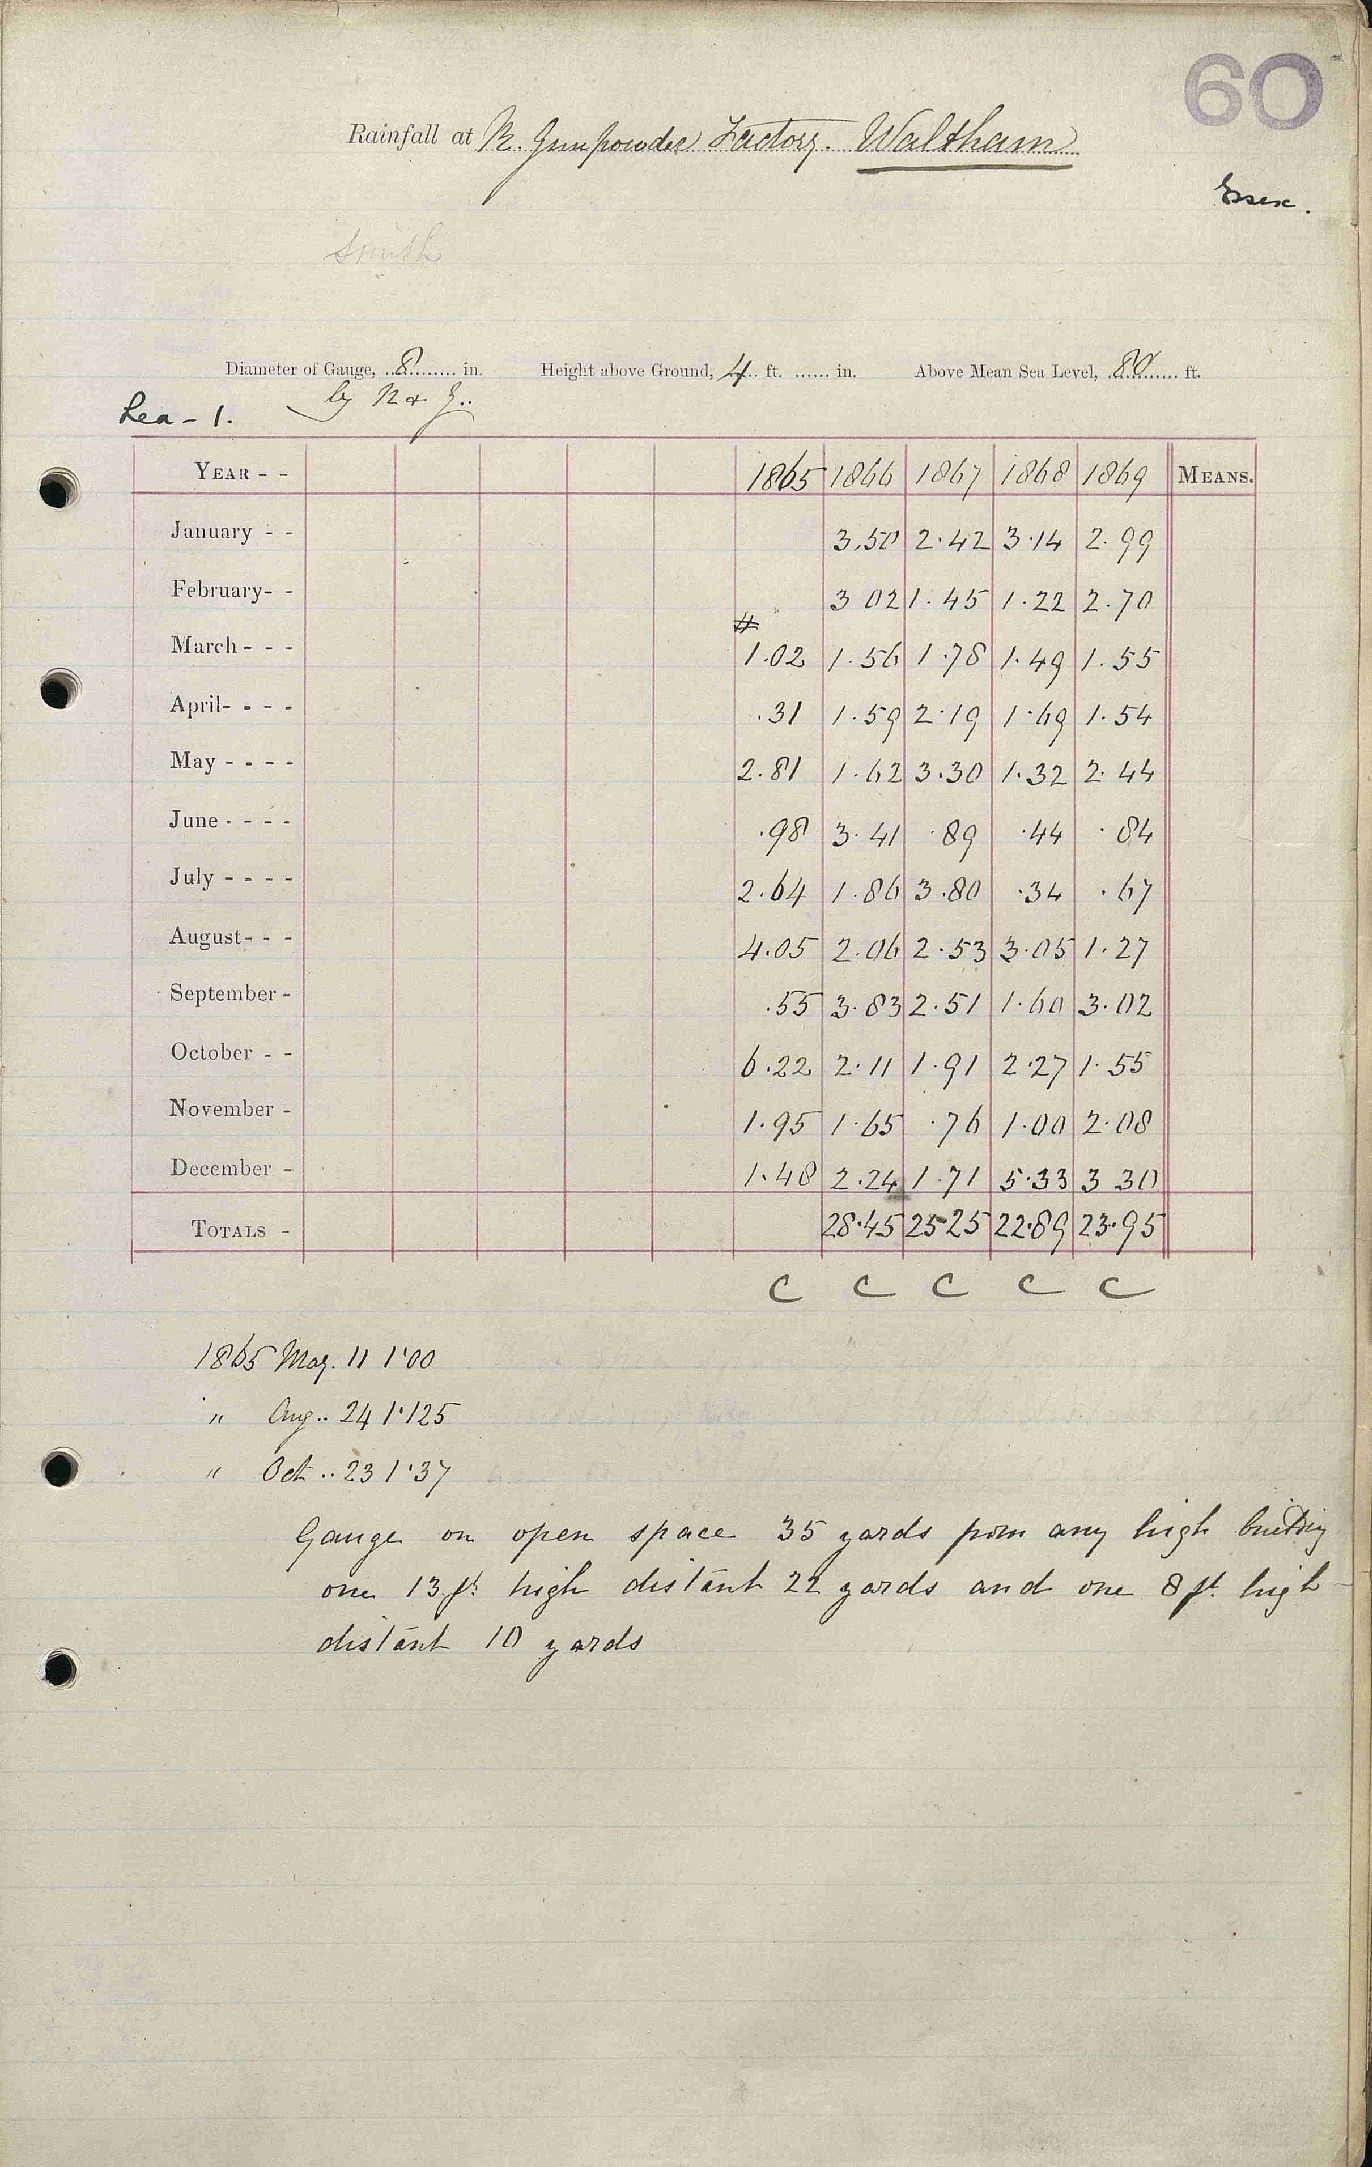 60
Rainfall at R. Gunpowder Factory. Waltham
Essex.
Smith
Diameter of Gauge, 8 in. Height above Ground, 4 ft. in. Above Mean Sea Level, 80 ft.
by N & Z..
Lea - 1.
YEAR - - 1865 1866 1867 1868 1869 MEANS.
January - - 3.50 2.42 3.14 2.99
February - - 3 02 1.45 1.22 2.70
#
March - - - 1.02 1.56 1.78 1.49 1.55
April - - - - .31 1.59 2.19 1.69 1.54
May - - - - 2.81 1.62 3.30 1.32 2.44
June - - - - .98 3.41 .89 .44 .84
July - - - - 2.64 1.86 3.80 .34 .67
August - - - 4.05 2.06 2.53 3.05 1.27
September - .55 3.83 2.51 1.60 3.02
October - - 6.22 2.11 1.91 2.27 1.55
November - 1.95 1.65 .76 1.00 2.08
December - 1.48 2.24 1.71 5.33 3 30
TOTALS - 28.45 25.25 22.89 23.95
C C C C C
1865 May. 11 1.00
" Aug.. 24 1.125
" Oct .. 23 1.37
Gauge on open space 35 yards from any high building
one 13 ft. high distant 22 yards and one 8 ft. high
distant 10 yards